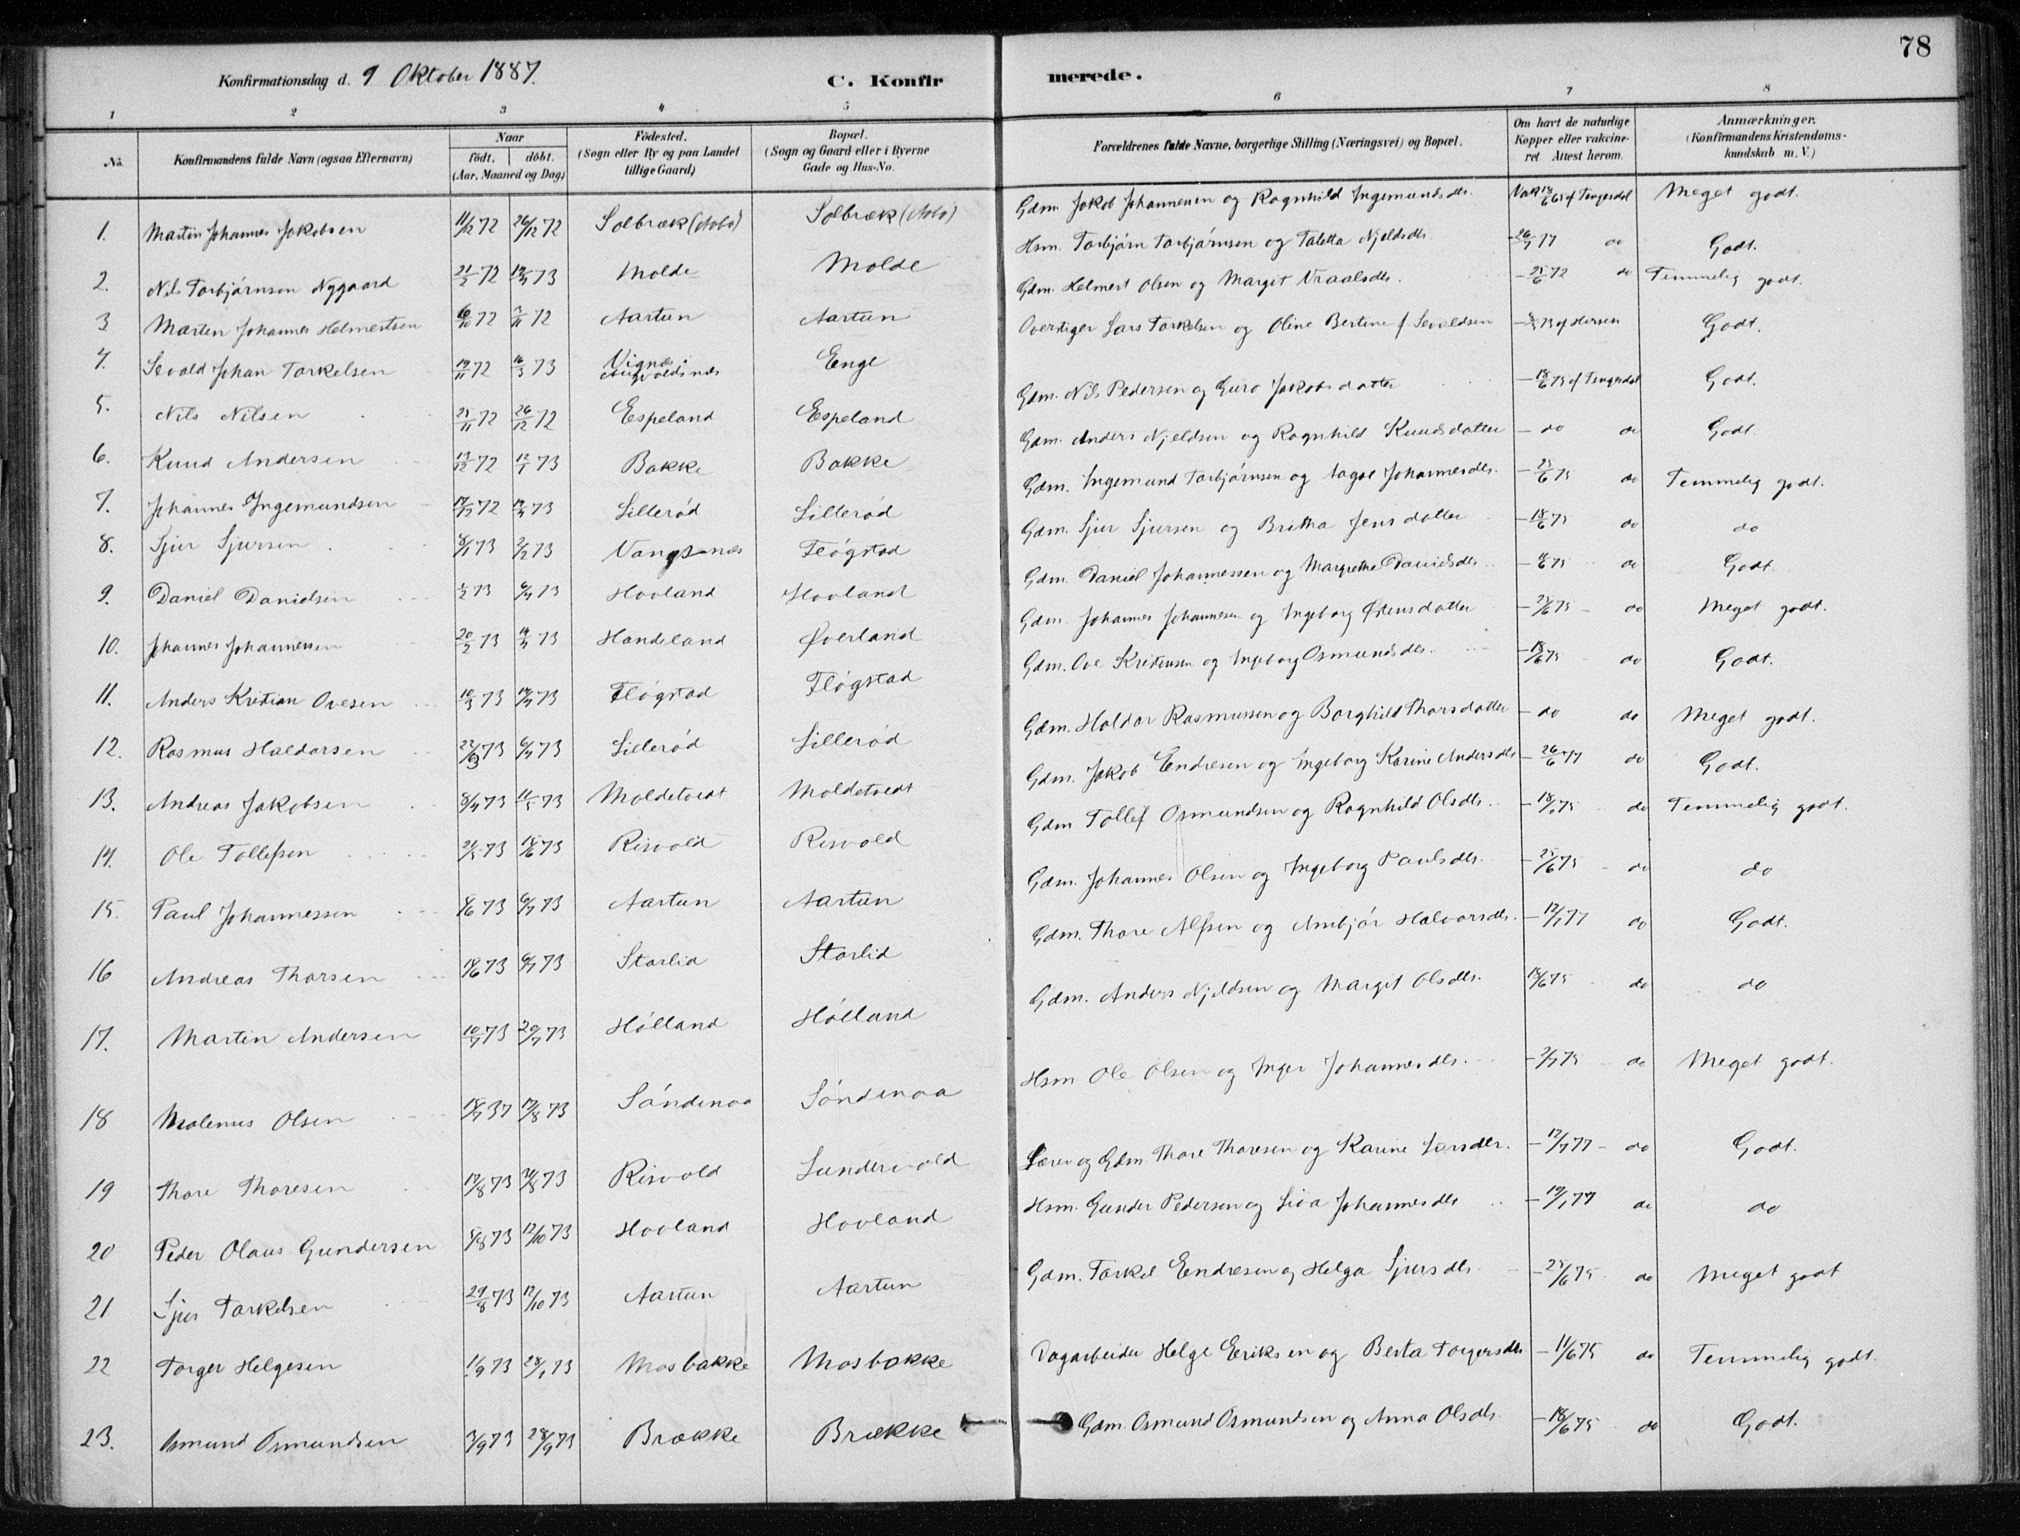 78
Konfirmationsdag d. 9 Oktober 1887.
C. Konfirmerede.
1 2 3 4 5 6 7 8
No. Konfirmandens fulde Navn (ogsaa Efternavn) Naar födt. döbt. (Aar, Maaned og Dag) Födested. (Sogn eller By og paa Landet tillige Gaard) Bopæl. (Sogn og Gaard eller i Byerne Gade og Hus-No. Forældrenes fulde Navne, borgerlige Stilling (Næringsvei) og Bopæl. Om havt de naturlige Kopper eller vakcineret Attest herom. Anmærkninger. (Konfirmandens Kristendomskundskab m. V.)
1. Martin Johannes Jakobsen 11/12 72 26/12 72 Solbræk Solbræk Gdm. Jakob Johannesen og Ragnhild Ingemundsdtr. Meget godt.
2. Nils Torbjörnsen Nygaard 21/2 72 73 Molde Molde Hsm. Torbjörn Torbjörnsen og Taletta Njeldsdtr. do Godt.
3 Marten Johannes Helmertsen 6/10 72 7/11 72 Aartun Aartun Gdm. Helmert Olsen og Margit Vraalsdtr. 25/6 72 do Temmelig godt.
4. Sevald Johan Torkelsen 19/11 72 16/3 73 Vignæs Enge Opertiger Lars Torkelsen og Oline Bertine f. Sevaldsen Godt.
5. Nils Nilsen 25/11 72 26/12 72 Espeland Espeland Gdm. Nils Pedersen og Guro Jakobsdatter 18/6 75 af Tengesdal Godt.
6. Knud Andersen 72 12/1 73 Bakke Bakke Gdm. Anders Njeldsen og Ragnhild Knudsdatter - do do Godt.
7. Johannes Ingemundsen 72 73 Lilleröd Lilleröd Gdm. Ingemund Torbjörnsen og Aagot Johannesdtr. 25/6 75 do Temmelig godt.
8. Sjur Sjursen 8/1 73 2/2 73 Vangsnæs Flögstad Gdm. Sjur Sjursen og Britha Jensdatter 18/6 75 do do
9. Daniel Danielsen 73 6/4 73 Hovland Hovland Gdm. Daniel Johannessen og Margrethe Danielsdtr. do Godt.
10. Johannes Johannessen 20/2 73 73 Handeland Øverland Gdm. Johannes Johannesen og Ingeborg Østensdatter 25/6 75 - do Meget godt.
11. Anders Kristian Ovesen 10/3 73 73 Flögstad Flögstad Gdm. Ove Kristensen og Ingeborg Osmundsdtr. 18/6 75 do Godt.
12. Rasmus Haldorsen 22/3 73 6/4 73 Lilleröd Lilleröd Gdm. Haldor Rasmussen og Borghild Thorsdatter - do do Meget godt.
13. Andreas Jakobsen 8/4 73 73 Moldetvedt Moldetvedt Gdm. Jakob Endresen og Ingeborg Karine Andersdtr. 26/6 77 do Godt.
14. Ole Tollefsen 73 15/6 73 Risvold Risvold Gdm Tollef Osmundsen og Ragnhild Olsdtr. 18/6 75 do Temmelig godt.
15. Paul Johannessen 73 6/7 73 Aartun Aartun Gdm. Johannes Olsen og Ingeborg Paulsdtr. 25/6 75 - do do
16 Andreas Thorsen 73 6/7 73 Storlid Storlid Gdm. Thore Alfsen og Anbjör Halvorsdtr. - 12/7 77 do Godt.
17. Martin Andersen 10/7 73 20/7 73 Hölland Hölland Gdm. Anders Njeldsen og Margit Olsdtr. 18/6 75 do do
18 Malenus Olsen 18/7 37 17/8 73 Söndenaa Söndenaa Hsm. Ole Olsen og Inger Johannesdtr. - 2/7 75 do Meget godt.
19 Thore Thoresen 73 73 Risvold Sundersvold Lærer og Gdm. Thore Thoresen og Karine Larsdtr. - 12/7 77 - do Godt.
20 Peder Olaus Gundersen 73 12/10 73 Hovland Hovland Hsm. Gunder Pedersen og Siva Johannesdtr do do
21 Sjur Torkelsen 29/8 73 12/10 73 Aartun Aartun Gdm. Torkel Endresen og Helga Sjursdtr. - 25/6 75 do Meget godt
22 Torger Helgesen 1/9 73 73 Mosbakke Mosbakke Dagarbeider Helge Eriksen og Berta Torgersdtr - 11/6 75 do Temmelig godt.
23. Osmund Osmundsen 3/9 73 28/9 73 Brække Brække Gdm. Osmund Osmundsen og Anna Olsdtr. - 18/6 75 do Godt.